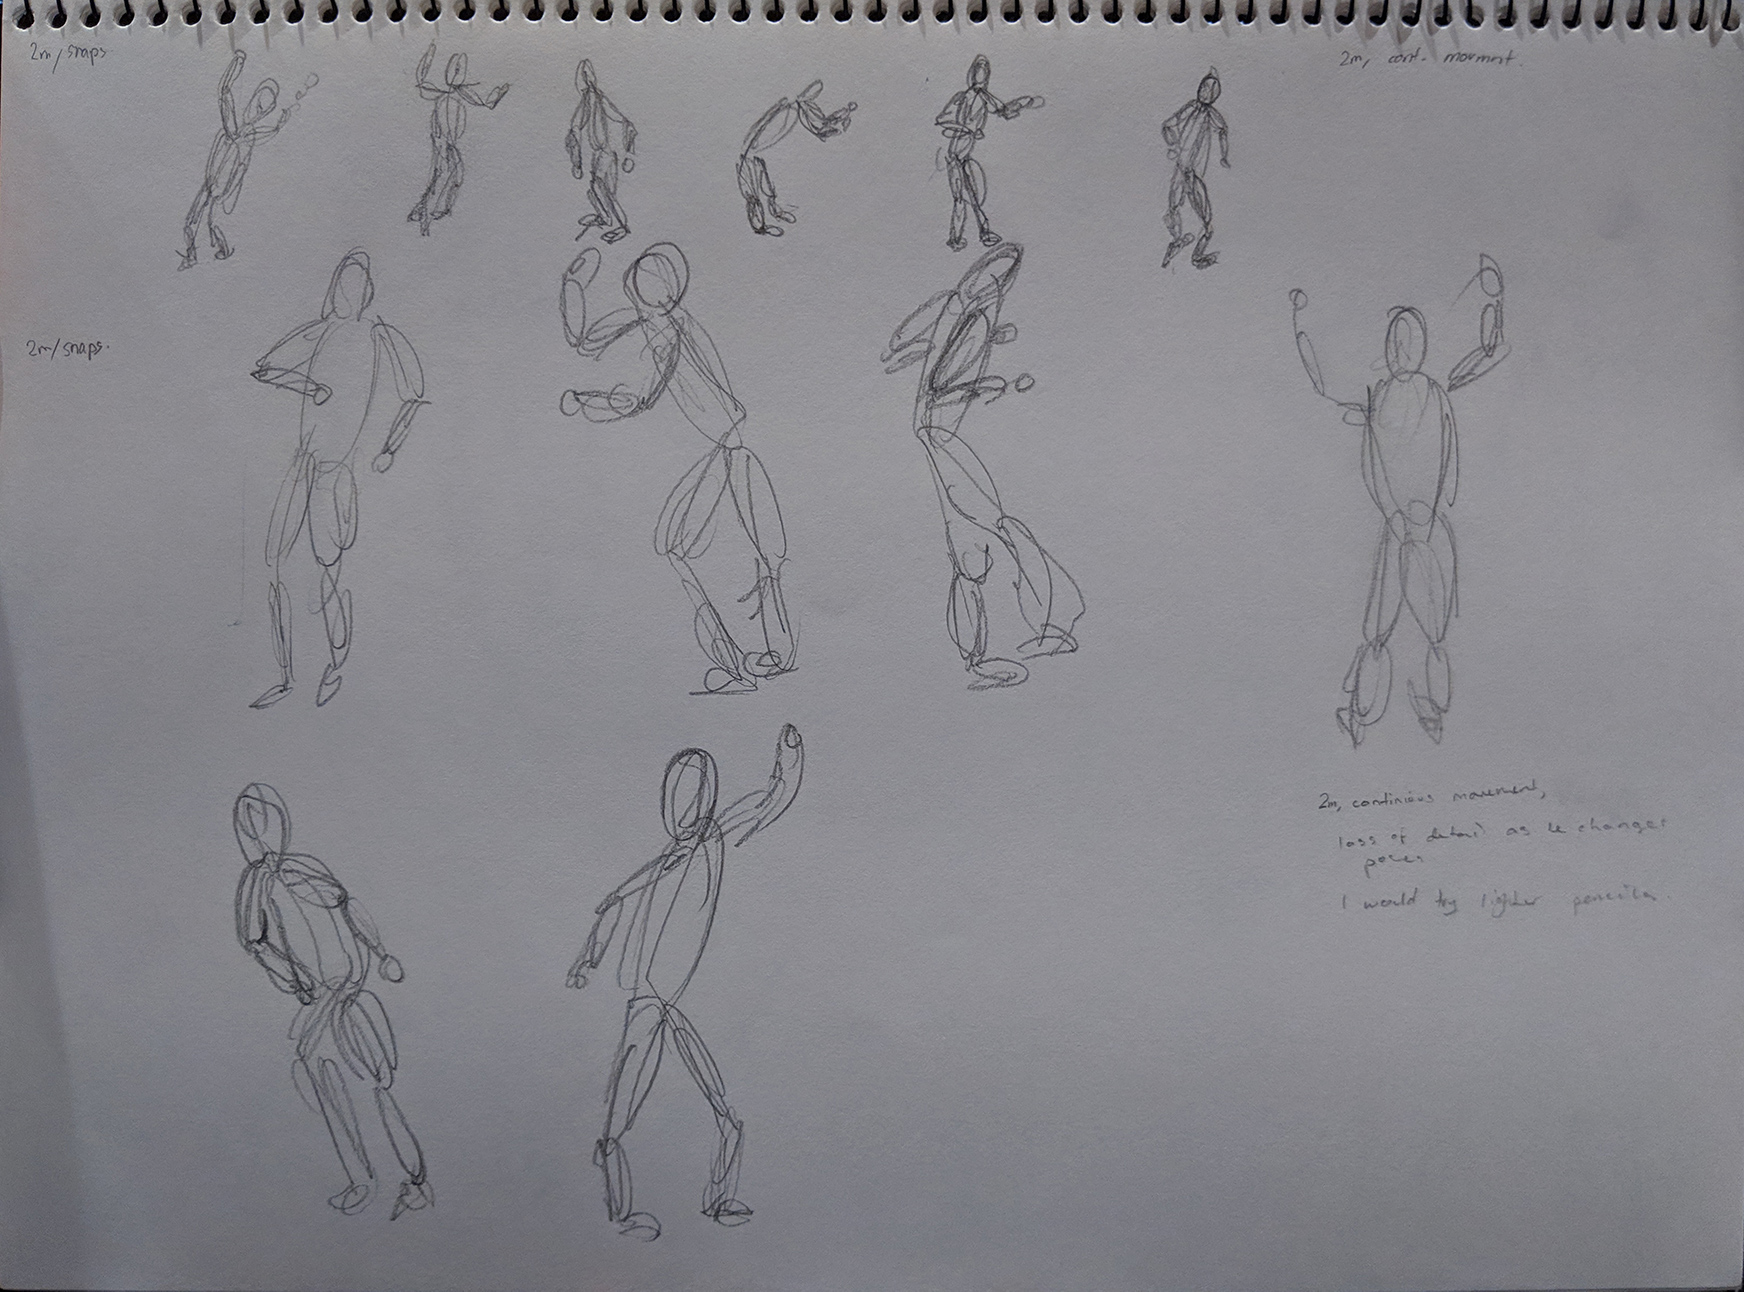 2m/snaps.
2m, cont. movment.
2m/snaps.
2m, continious movement,
loss of detail as he changes
poses
I would try lighter pencils.